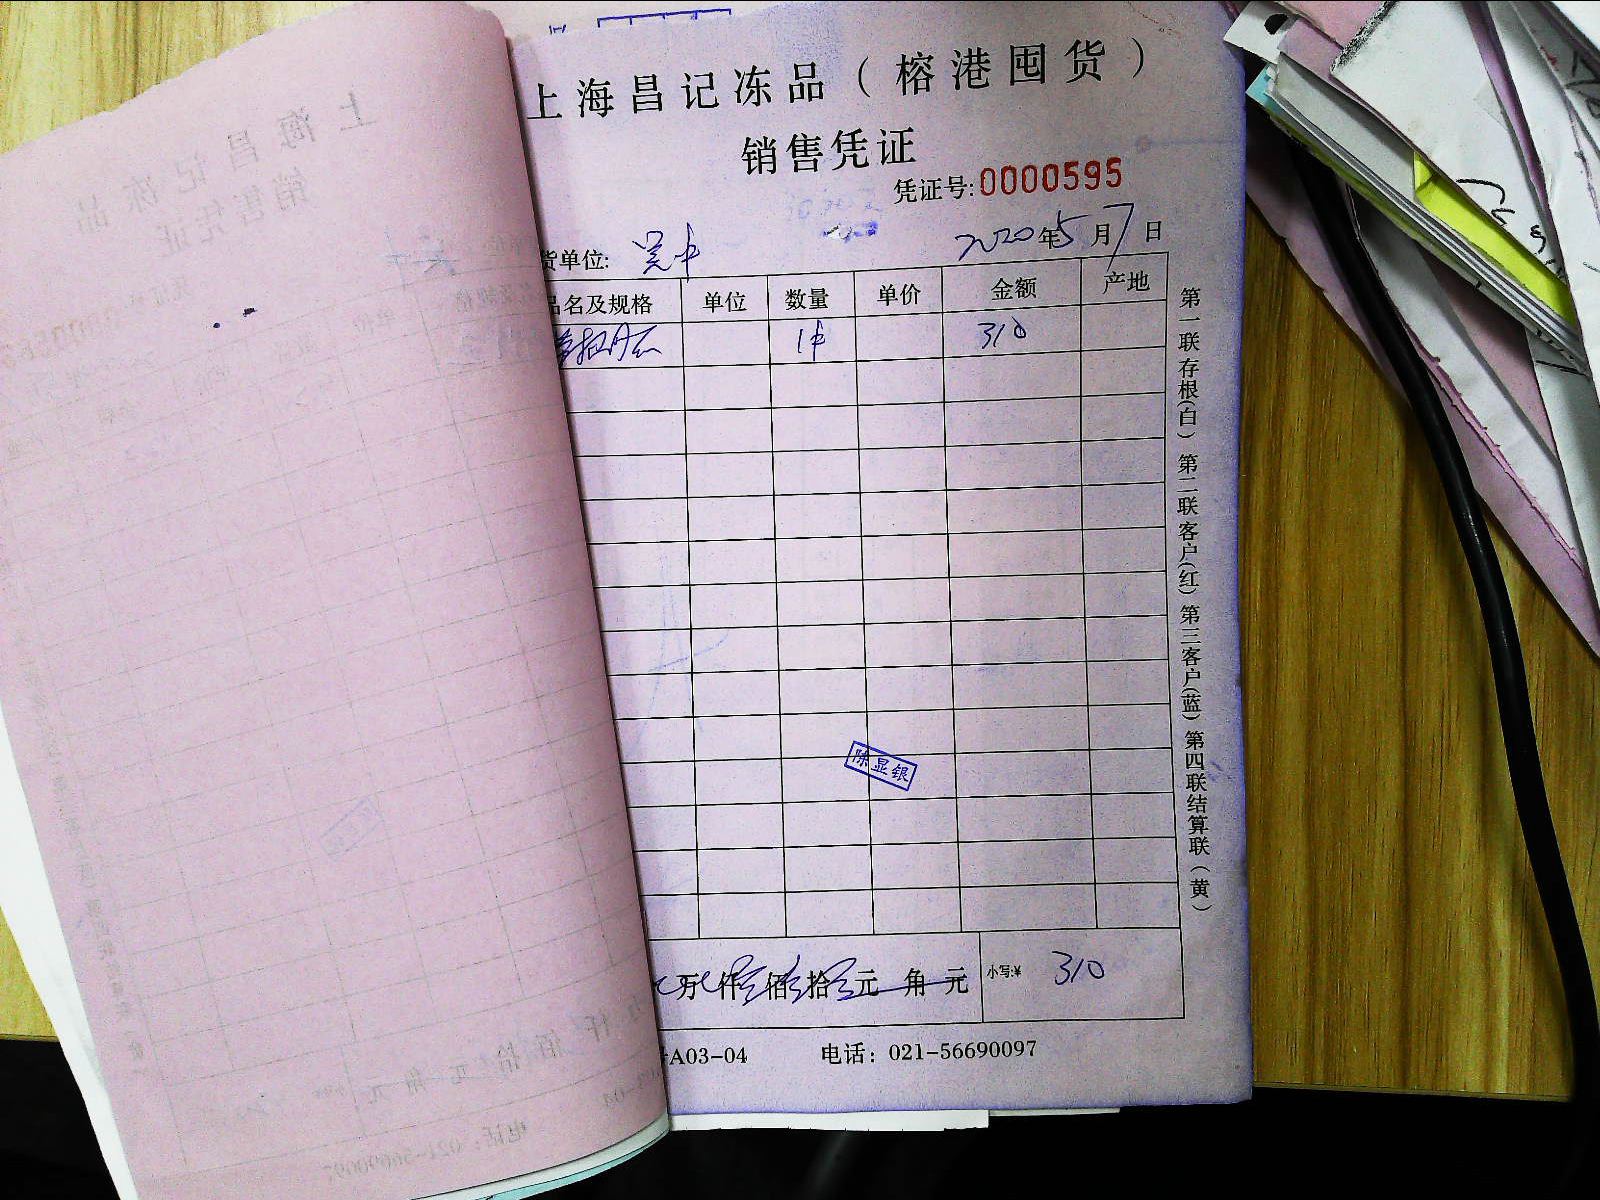 上海昌记冻品（榕港囤货）
销售凭证
凭证号:0000595
货单位: 吴中 2020年5月7日
品名及规格 单位 数量 单价 金额 产地
1件 310
陈显银
万仟佰拾元角元 小写:¥ 310
A03-04 电话：021-56690097
第一联存根(白) 第二联客户(红) 第三客户(蓝) 第四联结算联(黄)